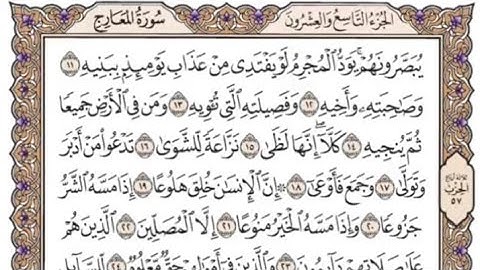 الجزء التاسع والعشرون
سورة المعارج
يُبَصَّرُونَهُمْ ۚ يَوَدُّ الْمُجْرِمُ لَوْ يَفْتَدِي مِنْ عَذَابِ يَوْمِئِذٍ بِبَنِيهِ ١١
وَصَاحِبَتِهِ وَأَخِيهِ ١٢ وَفَصِيلَتِهِ الَّتِي تُؤْوِيهِ ١٣ وَمَن فِي الْأَرْضِ جَمِيعًا
ثُمَّ يُنجِيهِ ١٤ كَلَّا ۖ إِنَّهَا لَظَىٰ ١٥ نَزَّاعَةً لِّلشَّوَىٰ ١٦ تَدْعُوا مَنْ أَدْبَرَ
وَتَوَلَّىٰ ١٧ وَجَمَعَ فَأَوْعَىٰ ١٨ ۞ إِنَّ الْإِنسَانَ خُلِقَ هَلُوعًا ١٩ إِذَا مَسَّهُ الشَّرُّ
جَزُوعًا ٢٠ وَإِذَا مَسَّهُ الْخَيْرُ مَنُوعًا ٢١ إِلَّا الْمُصَلِّينَ ٢٢ الَّذِينَ هُمْ
عَلَىٰ صَلَاتِهِمْ دَائِمُونَ ٢٣ وَالَّذِينَ فِي أَمْوَالِهِمْ حَقٌّ مَّعْلُومٌ ٢٤ لِّلسَّائِلِ
الحزب
٥٧